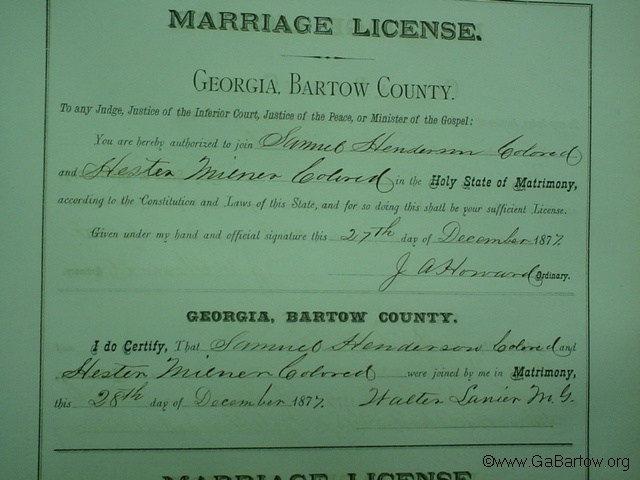 MARRIAGE LICENSE.
GEORGIA, BARTOW COUNTY.
To any Judge, Justice of the Inferior Court, Justice of the Peace, or Minister of the Gospel:
You are hereby authorized to join Samuel Henderson Colored
and Hester Milner Colored in the Holy State of Matrimony,
according to the Constitution and Laws of this State, and for so doing this shall be your sufficient License.
Given under my hand and official signature this 27th day of December 1877.
J A Howard Ordinary.
GEORGIA, BARTOW COUNTY.
I do Certify, That Samuel Henderson Colored and
Hester Milner Colored were joined by me in Matrimony,
this 28th day of December 1877. Walter Lanier M.G.
MARRIAGE LICENSE
©www.GaBartow.org